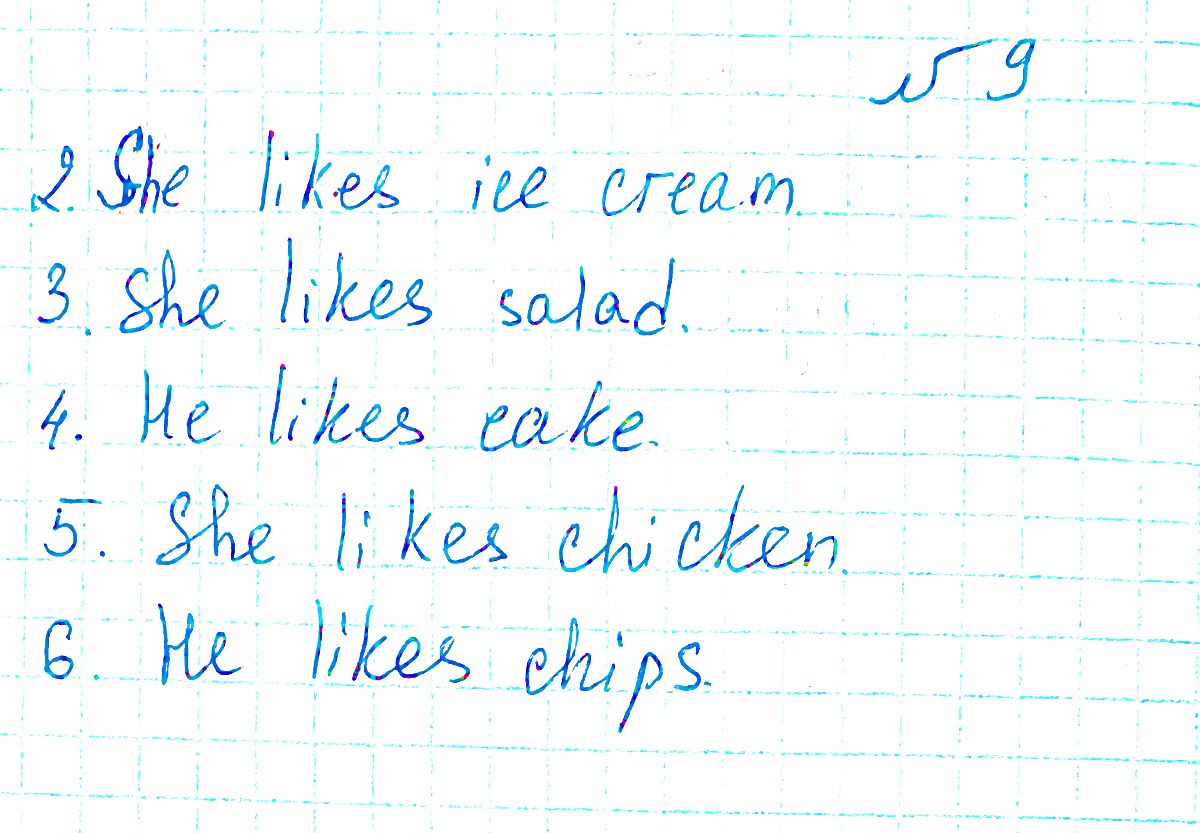 № 9
2. She likes ice cream.
3. She likes salad.
4. He likes cake.
5. She likes chicken.
6. He likes chips.